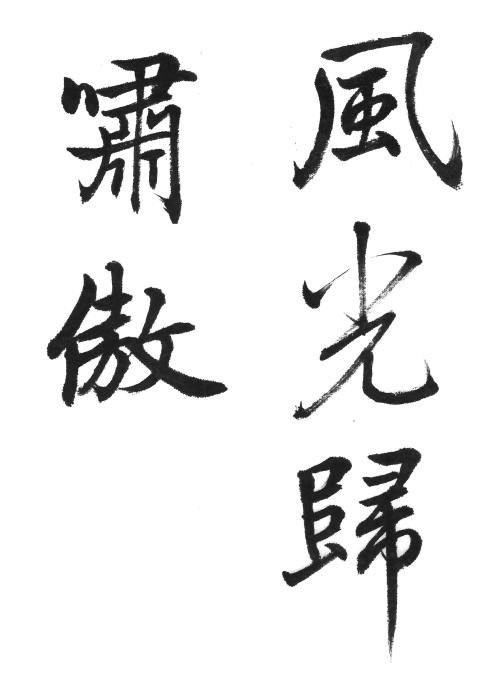 風光歸
嘯傲